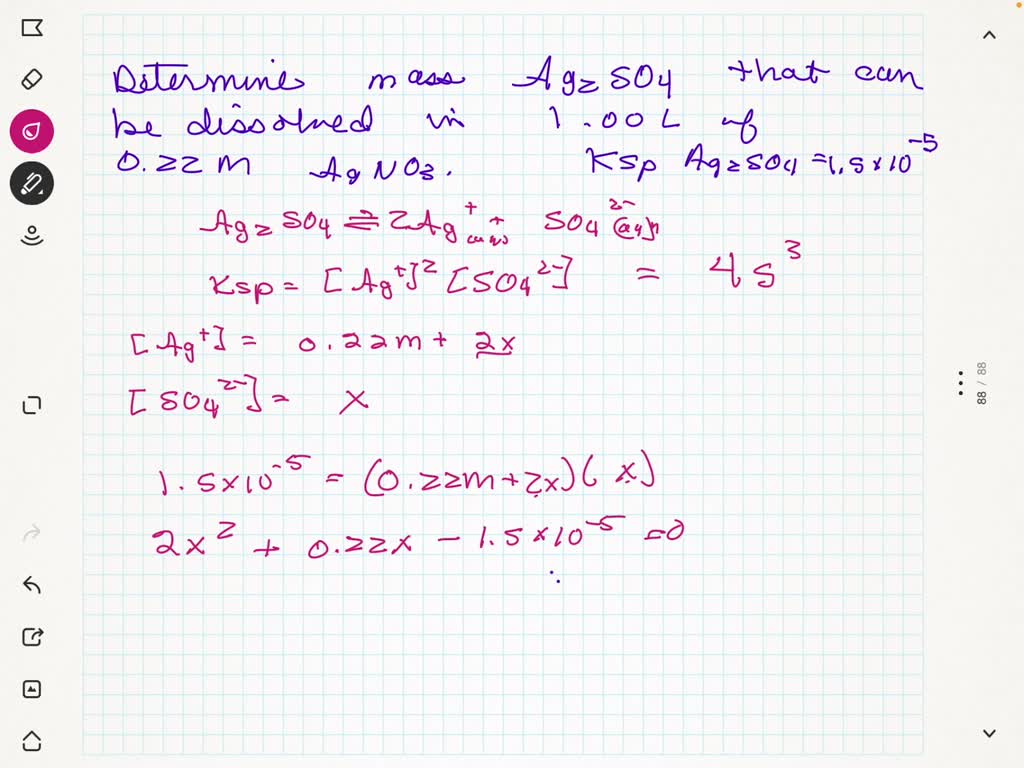 Determine mass Ag2SO4 that can
be dissolved in 1.00 L of
0.22 M AgNO3. Ksp Ag2SO4 = 1.5 × 10^-5
Ag2SO4 ⇌ 2Ag^+ (aq) + SO4^2- (aq)
Ksp = [Ag^+]^2 [SO4^2-] = 4s^3
[Ag^+] = 0.22m + 2x
[SO4^2-] = x
1.5×10^-5 = (0.22m+2x)(x)
2x^2 + 0.22x - 1.5×10^-5 = 0
88 / 88